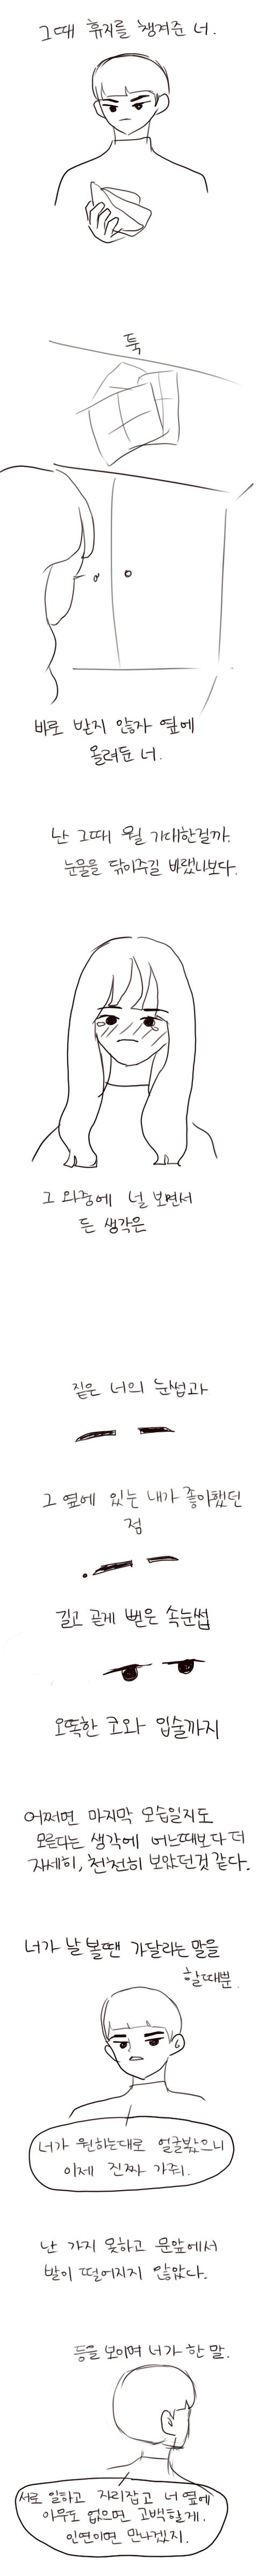 그때 휴지를 챙겨준 너.
툭
바로 받지 않자 옆에
올려둔 너.
난 그때 뭘 기대한걸까.
눈물을 닦아주길 바랬나보다.
그 와중에 널 보면서
든 생각은
짙은 너의 눈썹과
그 옆에 있는 내가 좋아했던
점
길고 곧게 뻗은 속눈썹
오똑한 코와 입술까지
어쩌면 마지막 모습일지도
모른다는 생각에 어느때보다 더
자세히, 천천히 보았던것 같다.
너가 날 볼땐 가달라는 말을
할때뿐.
너가 원하는대로 얼굴봤으니
이제 진짜 가줘.
난 가지 못하고 문앞에서
발이 떨어지지 않았다.
등을 보이며 너가 한 말.
서로 일하고 자리잡고 너 옆에
아무도 없으면 고백할게.
인연이면 만나겠지.